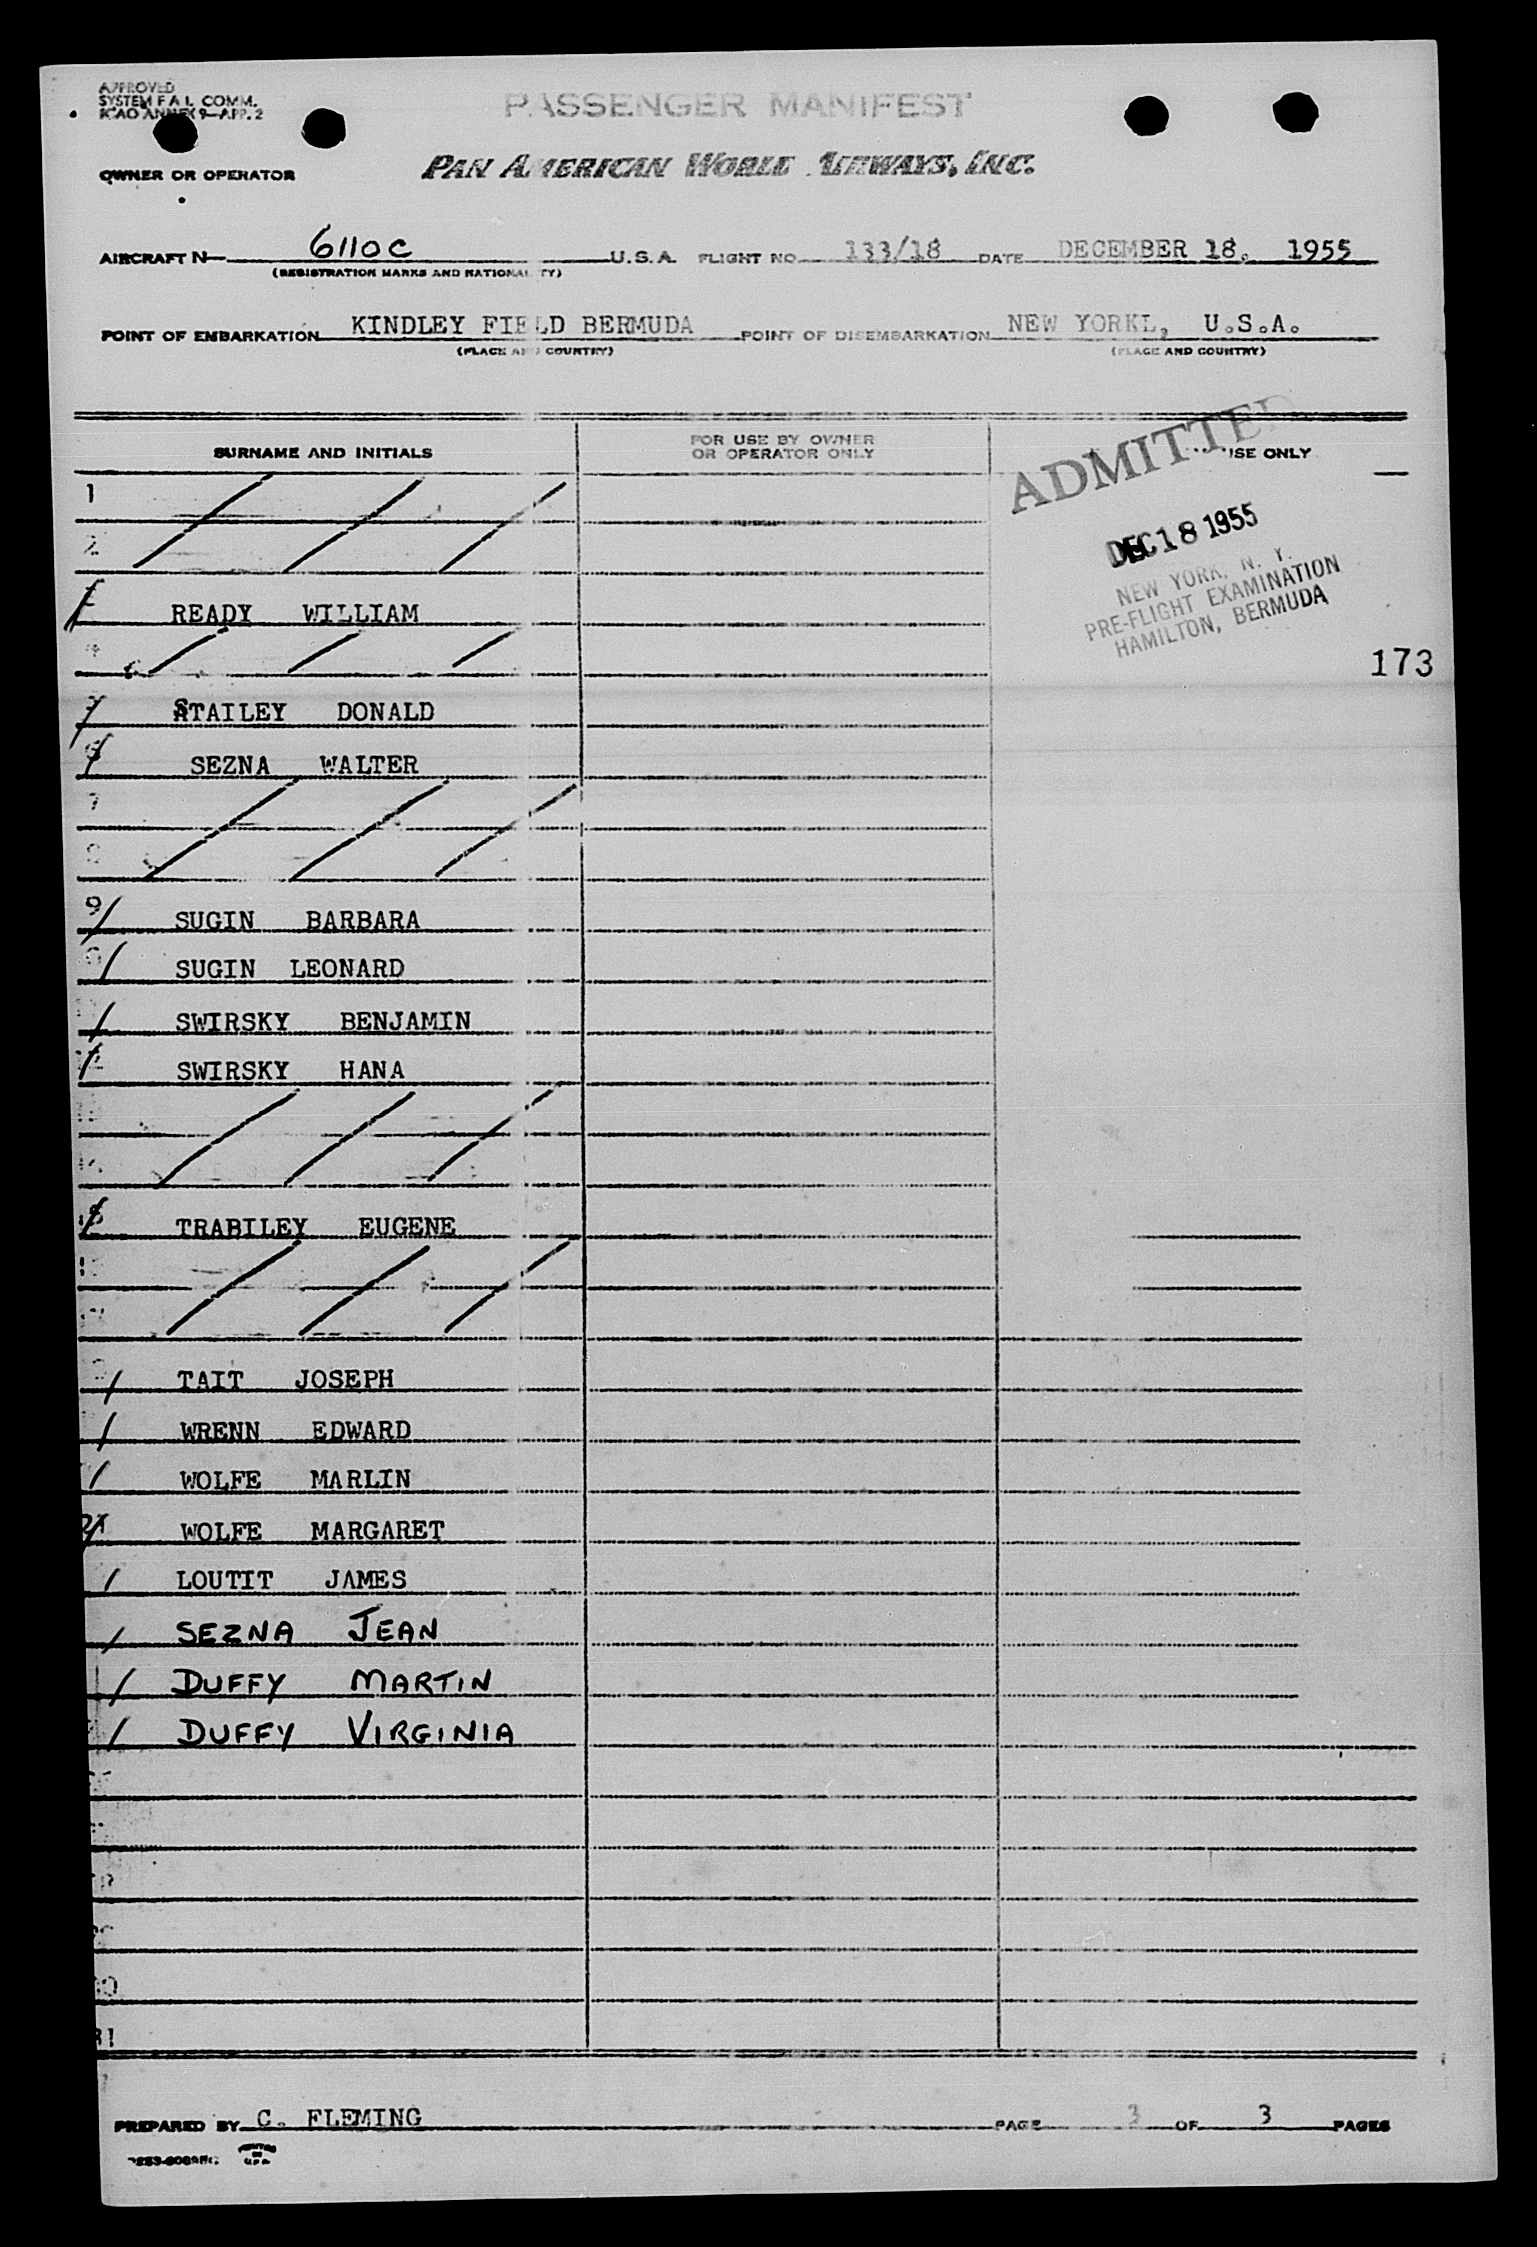 APPROVED
SYSTEM F A L COMM.
ICAO ANNEX 9—APP. 2
PASSENGER MANIFEST
OWNER OR OPERATOR PAN AMERICAN WORLD AIRWAYS, INC.
AIRCRAFT N 6110C U.S.A. FLIGHT NO 133/18 DATE DECEMBER 18. 1955
(REGISTRATION MARKS AND NATIONALITY)
POINT OF EMBARKATION KINDLEY FIELD BERMUDA POINT OF DISEMBARKATION NEW YORKL, U.S.A.
(PLACE AND COUNTRY) (PLACE AND COUNTRY)
SURNAME AND INITIALS FOR USE BY OWNER OR OPERATOR ONLY USE ONLY
ADMITTED
DEC 18 1955
NEW YORK, N. Y.
PRE-FLIGHT EXAMINATION
HAMILTON, BERMUDA
173
1
2
READY WILLIAM
4
5 STAILEY DONALD
6 SEZNA WALTER
7
8
9 SUGIN BARBARA
SUGIN LEONARD
SWIRSKY BENJAMIN
12 SWIRSKY HANA
15 TRABILEY EUGENE
TAIT JOSEPH
WRENN EDWARD
WOLFE MARLIN
21 WOLFE MARGARET
LOUTIT JAMES
SEZNA JEAN
DUFFY MARTIN
DUFFY VIRGINIA
30
31
PREPARED BY C. FLEMING PAGE 3 OF 3 PAGES
PRINTED IN U.S.A.